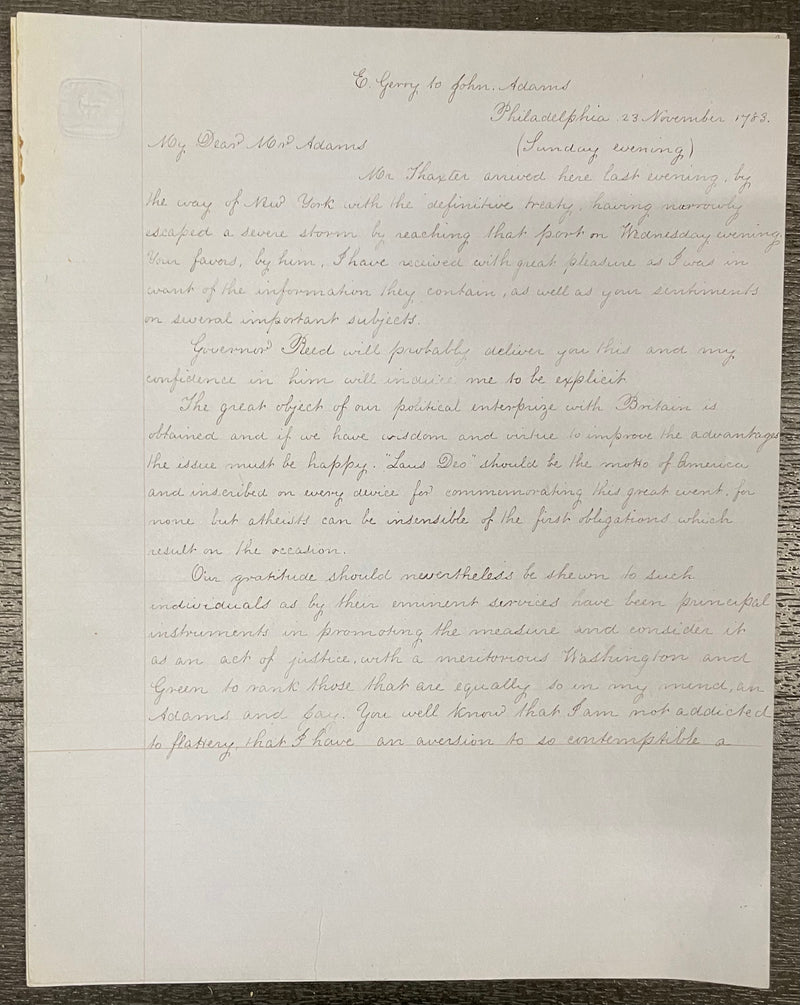 E. Gerry to John. Adams
Philadelphia 23 November 1783.
My Dear Mr Adams
(Sunday evening)
Mr Thaxter arrived here last evening, by
the way of New York with the definitive treaty, having narrowly
escaped a severe storm by reaching that port on Wednesday evening.
Your favors, by him, I have received with great pleasure as I was in
want of the information they contain, as well as your sentiments
on several important subjects.
Governor Reed will probably deliver you this and my
confidence in him will induce me to be explicit
The great object of our political enterprize with Britain is
obtained and if we have wisdom and virtue to improve the advantages
the issue must be happy. "Laus Deo" should be the motto of America
and inscribed on every device for commemorating this great event, for
none but atheists can be insensible of the first obligations which
result on the occasion.
Our gratitude should nevertheless be shewn to such
individuals as by their eminent services have been principal
instruments in promoting the measure and consider it
as an act of justice, with a meritorious Washington and
Green to rank those that are equally so in my mind, an
Adams and Jay. You well know that I am not addicted
to flattery, that I have an aversion to so contemptible a